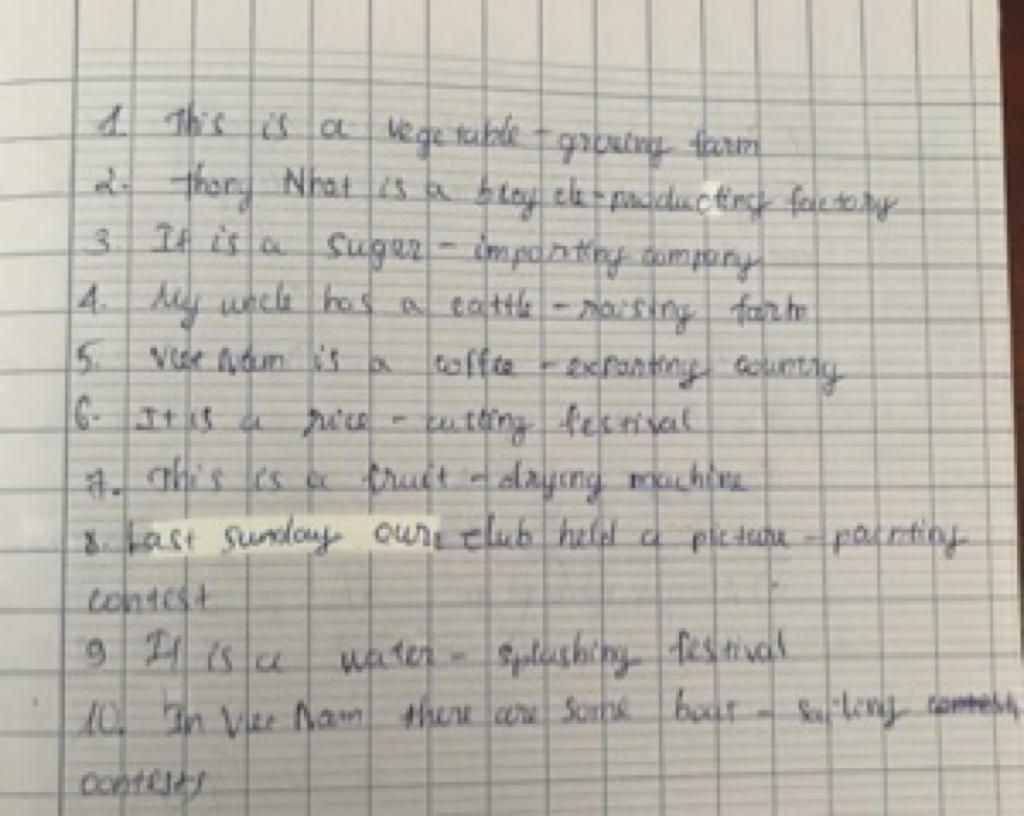 1. This is a vegetable - growing farm
2. Thong Nhat is a bicycle - producting factory
3. It is a suger - importing company
4. My uncle has a cattle - raising farm
5. Viet Nam is a coffee - exporting country
6. It is a rice - cutting festival
7. This is a fruit - drying machine
8. Last sunday our club held a picture - painting
contest
9 It is a water - splashing festival
10. In Viet Nam there are some boat - sailing
contests